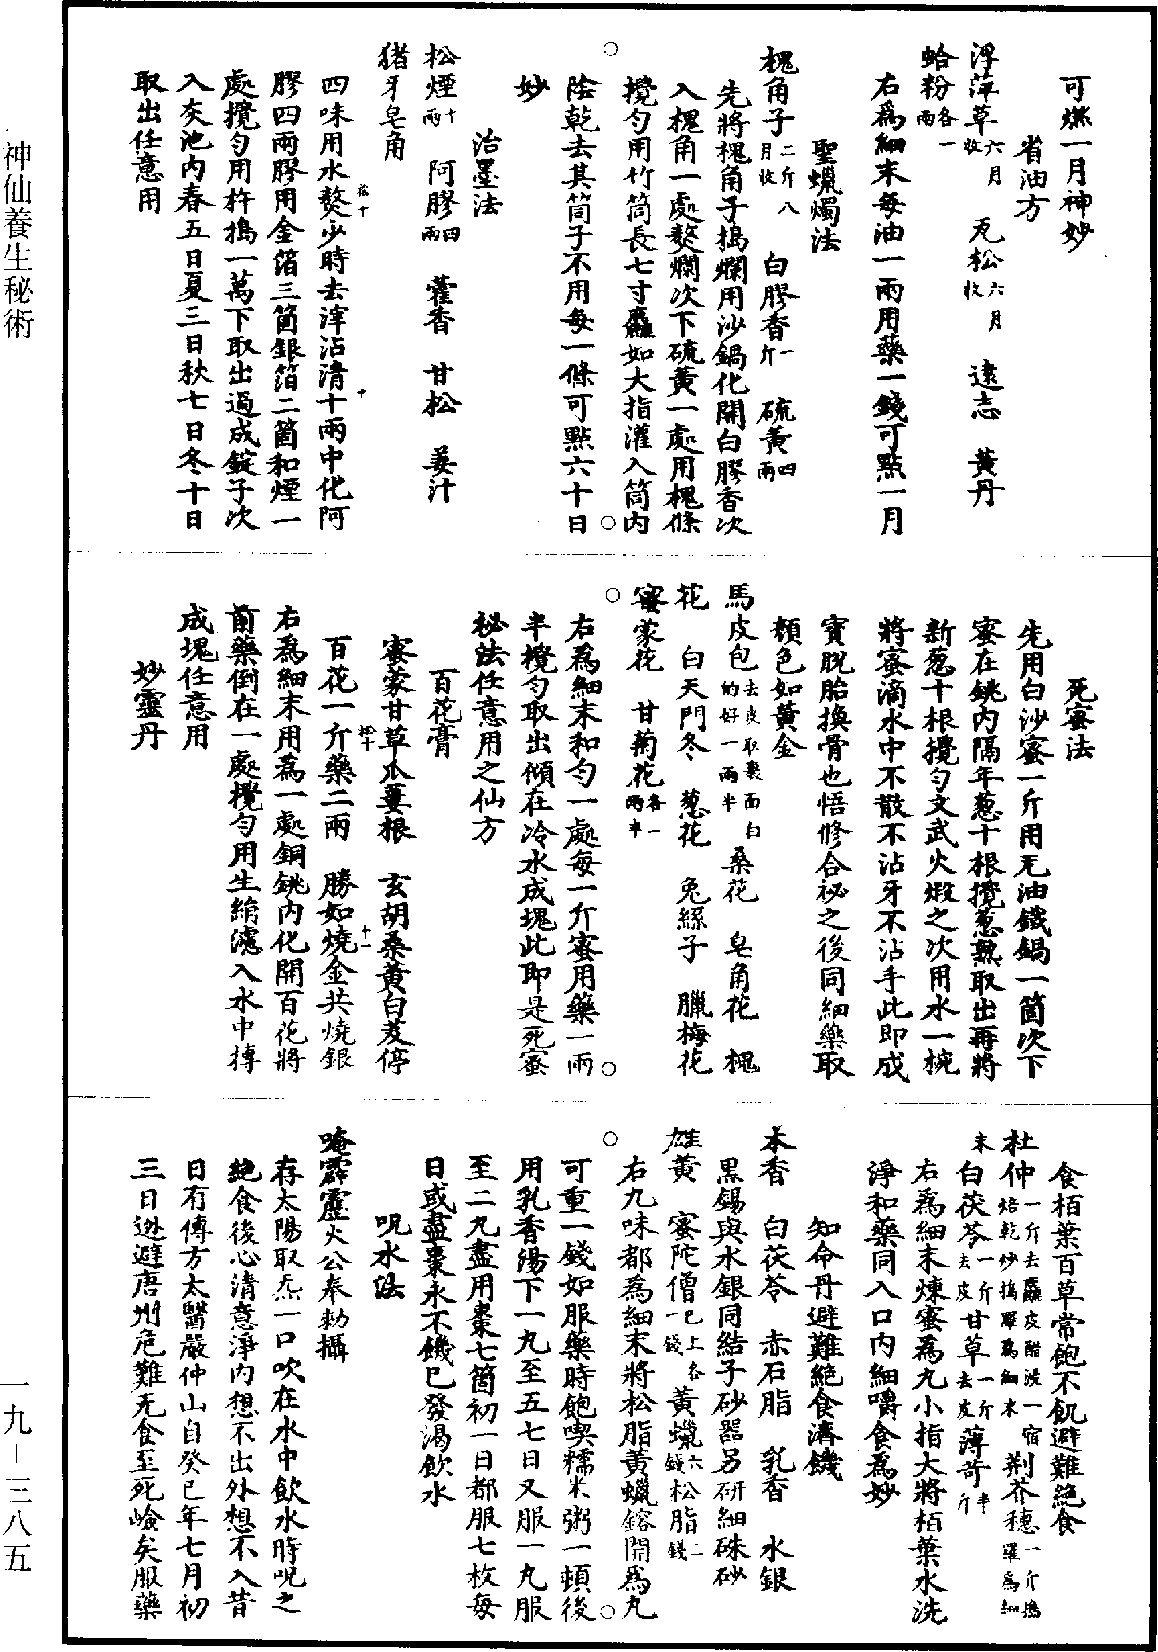 神仙養生秘術
一九—三八五
可燃一月神妙
省油方
浮萍草六月收 瓦松六月收 遠志 黃丹
蛤粉各一兩
右爲細末每油一兩用藥一錢可點一月
聖蠟燭法
槐角子二斤八月收 白膠香一斤 硫黃四兩
先將槐角子搗爛用沙鍋化開白膠香次
入槐角一處熬爛次下硫黃一處用槐條
攪勻用竹筒長七寸麤如大指灌入筒內
陰乾去其筒子不用每一條可點六十日
妙
治墨法
松煙十兩 阿膠四兩 藿香 甘松 姜汁
猪牙皂角
四味用水熬少時去滓沾清十兩中化阿
膠四兩膠用金箔三箇銀箔二箇和煙一
處攪勻用杵搗一萬下取出過成錠子次
入灰池內春五日夏三日秋七日冬十日
取出任意用
死蜜法
先用白沙蜜一斤用无油鐵鍋一箇次下
蜜在銚內隔年葱十根攪葱熟取出再將
新葱十根攪勻文武火煅之次用水一椀
將蜜滴水中不散不沾牙不沾手此即成
寶脫胎換骨也悟修合祕之後同細藥取
顏色如黃金
馬皮包去皮取裏面白的好一兩半 桑花 皂角花 槐
花 白天門冬 葱花 兔絲子 臘梅花
蜜蒙花 甘菊花各一兩半
右爲細末和勻一處每一斤蜜用藥一兩
半攪勻取出傾在冷水成塊此即是死蜜
秘法任意用之仙方
百花膏
蜜蒙甘草瓜蔞根 玄胡桑黃白芨停
百花一斤藥二兩 勝如燒金共燒銀
右爲細末用爲一處銅銚內化開百花將
前藥倒在一處攪勻用生絹濾入水中摶
成塊任意用
妙靈丹
食栢葉百草常飽不飢避難絕食
杜仲一斤去麤皮醋浸一宿焙乾炒搗羅爲細末 荆芥穗一斤搗羅爲細
末 白茯苓一斤去皮 甘草一斤去皮 薄荷半斤
右爲細末煉蜜爲丸小指大將栢葉水洗
淨和藥同入口內細嚼食爲妙
知命丹避難絕食濟饑
木香 白茯苓 赤石脂 乳香 水銀
黑錫與水銀同結子砂器另研細硃砂
雄黃 蜜陀僧已上各一錢 黃蠟六錢 松脂二錢
右九味都爲細末將松脂黃蠟鎔開爲丸
可重一錢如服藥時飽喫糯米粥一頓後
用乳香湯下一丸至五七日又服一丸服
至二丸盡用棗七箇初一日都服七枚每
日或盡棗永不饑已發渴飲水
呪水法
唵霹靂火公奉勑攝
存太陽取炁一口吹在水中飲水時呪之
絕食後心清意淨內想不出外想不入昔
日有傳方太醫嚴仲山自癸巳年七月初
三日迯避唐州危難无食至死嶮矣服藥